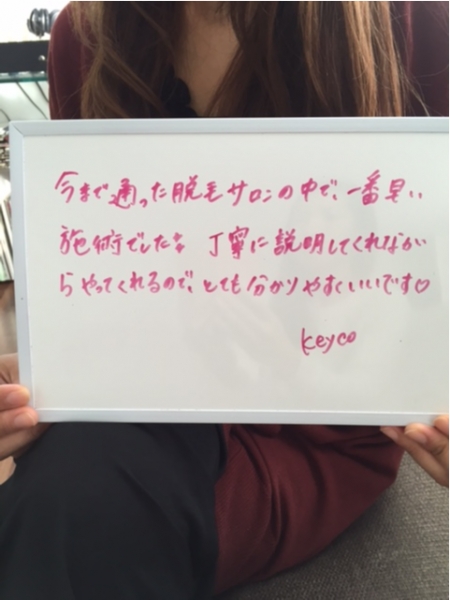 今まで通った脱毛サロンの中で、一番早い
施術でした✨ 丁寧に説明してくれなが
らやってくれるので、とても分かりやすくいいです♡
keyco